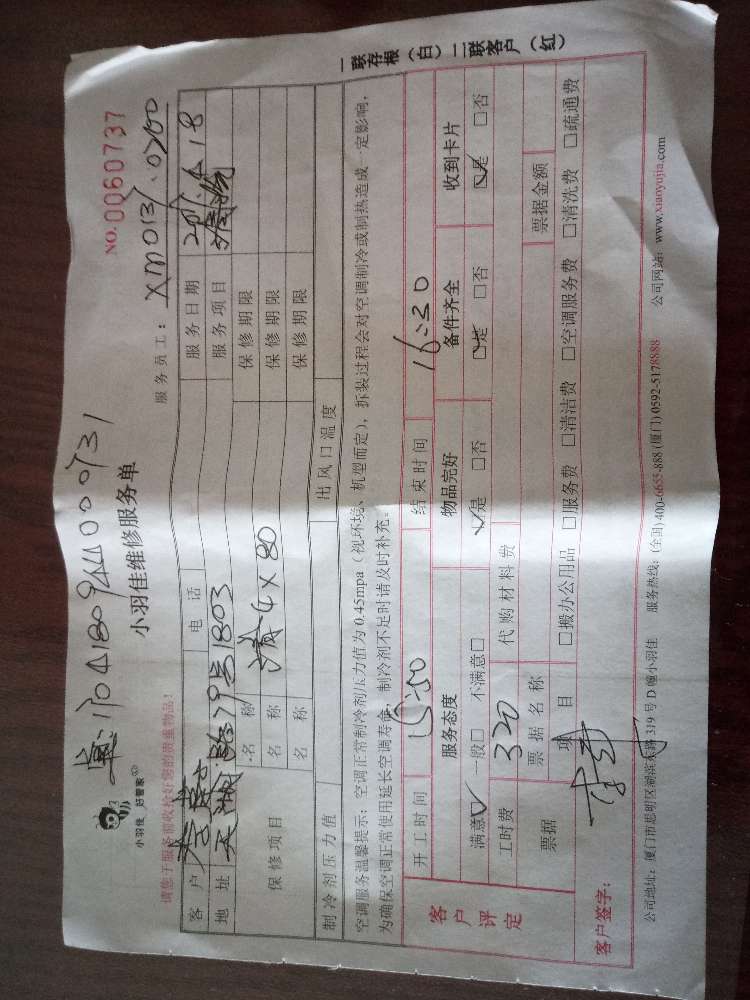 170418094400073 1
NO. 0060737
小羽佳 好管家
小羽佳维修服务单
请您于服务前收拾好您的贵重物品!
服务员工: XM0137.0760
客户 电话 服务日期
地址 1803 服务项目
保修项目 名称 清4×80 保修期限
名称 保修期限
名称 保修期限
制冷剂压力值 出风口温度
空调服务温馨提示:空调正常制冷剂压力值为 0.45mpa(视环境、机型而定),拆装过程会对空调制冷或制热造成一定影响,
为确保空调正常使用延长空调寿命,制冷剂不足时请及时补充。
客户评定
开工时间 15:50 结束时间 16:30
服务态度 物品完好 备件齐全 收到卡片
满意☑ 一般□ 不满意□ ☑是 □否 ☑是 □否 ☑是 □否
工时费 320 代购材料费
票据 票据名称 票据金额
项目 □搬办公用品 □服务费 □清洁费 □空调服务费 □清洗费 □疏通费
客户签字:
公司地址:厦门市思明区湖滨东路 319 号 D 幢小羽佳 服务热线:(全国)400-6655-888 (厦门) 0592-5178888 公司网站:www.xiaoyujia.com
一联存根(白)二联客户(红)